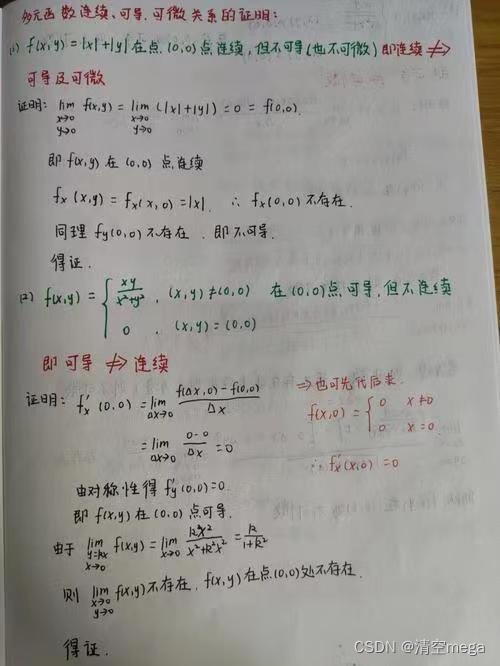 多元函数连续、可导、可微关系的证明：
(1) f(x,y)=|x|+|y|在点(0,0)点连续，但不可导(也不可微)即连续⇏
可导及可微
证明：lim_{x→0 y→0} f(x,y) = lim_{x→0 y→0} (|x|+|y|)=0 = f(0,0).
即f(x,y)在(0,0)点连续
f_x(x,y)=f_x(x,0)=|x|. ∴ f_x(0,0)不存在.
同理f_y(0,0)不存在.即不可导.
得证.
(2) f(x,y)= { xy/(x²+y²), (x,y)≠(0,0) 在(0,0)点可导,但不连续
0, (x,y)=(0,0)
即可导⇏连续
证明：f'_x(0,0) = lim_{Δx→0} (f(Δx,0)-f(0,0))/Δx ⇒也可先代后求.
= lim_{Δx→0} (0-0)/Δx = 0 f(x,0)= { 0 x≠0
0 x=0
∴ f'_x(x,0)=0
由对称性得f'_y(0,0)=0.
即f(x,y)在(0,0)点可导.
由于 lim_{y=kx x→0} f(x,y) = lim_{x→0} kx²/(x²+k²x²) = k/(1+k²)
则 lim_{x→0 y→0} f(x,y)不存在,f(x,y)在点(0,0)处不存在.
得证.
CSDN @清空mega